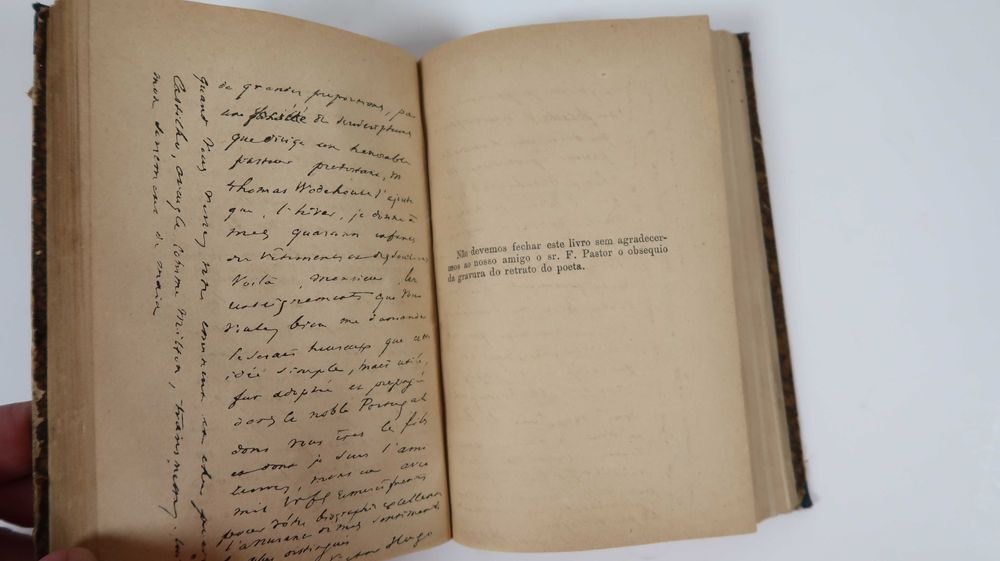 de grandes proportions, par
une société de
que dirige un honorable
pasteur protestant, M.
Thomas Wodehouse J'ajoute
que, l'hiver, je donne à
mes quarante enfants
des vêtements et des souliers
Voilà, monsieur, les
renseignements que vous
voulez bien me demander
Je serais heureux que cette
idée simple, mais utile,
fut adoptée et propagée
dans le noble Portugal
dont vous êtes le fils
et dont je suis l'ami
avec
mil
pour votre biographie excellente
l'assurance de mes sentiments
les plus distingués
Victor Hugo
quand vous
Castilho, aveugle comme Milton,
main
Não devemos fechar este livro sem agradecer-
mos ao nosso amigo o sr. F. Pastor o obsequio
da gravura do retrato do poeta.